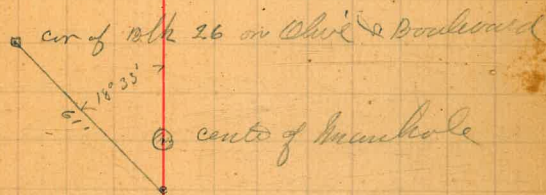 cor of Blk 26 on Olive & Boulevard
18° 33'
61'
center of Manhole